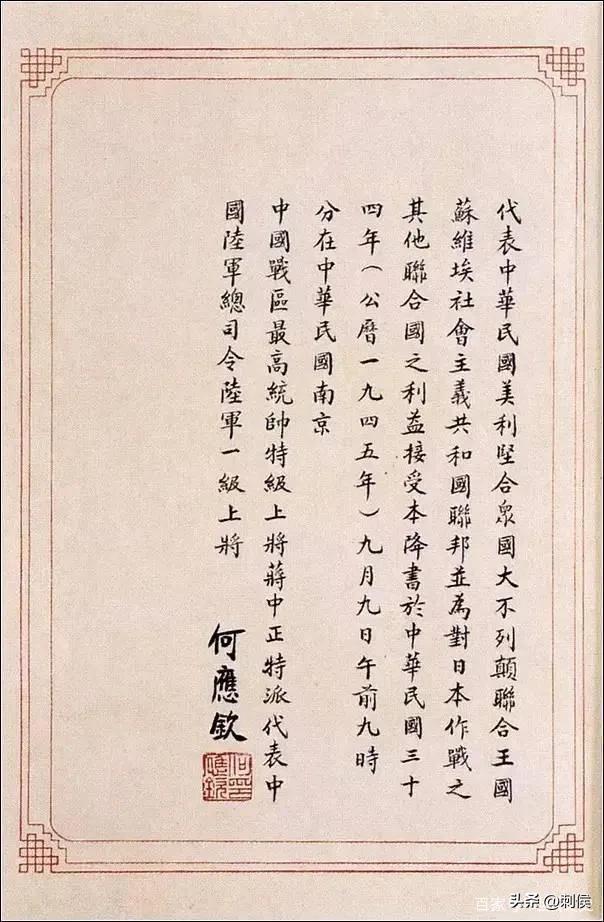 代表中華民國美利堅合衆國大不列顛聯合王國
蘇維埃社會主義共和國聯邦並為對日本作戰之
其他聯合國之利益接受本降書於中華民國三十
四年（公曆一九四五年）九月九日午前九時
分在中華民國南京
中國戰區最高統帥特級上將蔣中正特派代表中
國陸軍總司令陸軍一級上將
何應欽
何應欽印
百家
头条 @刺侯